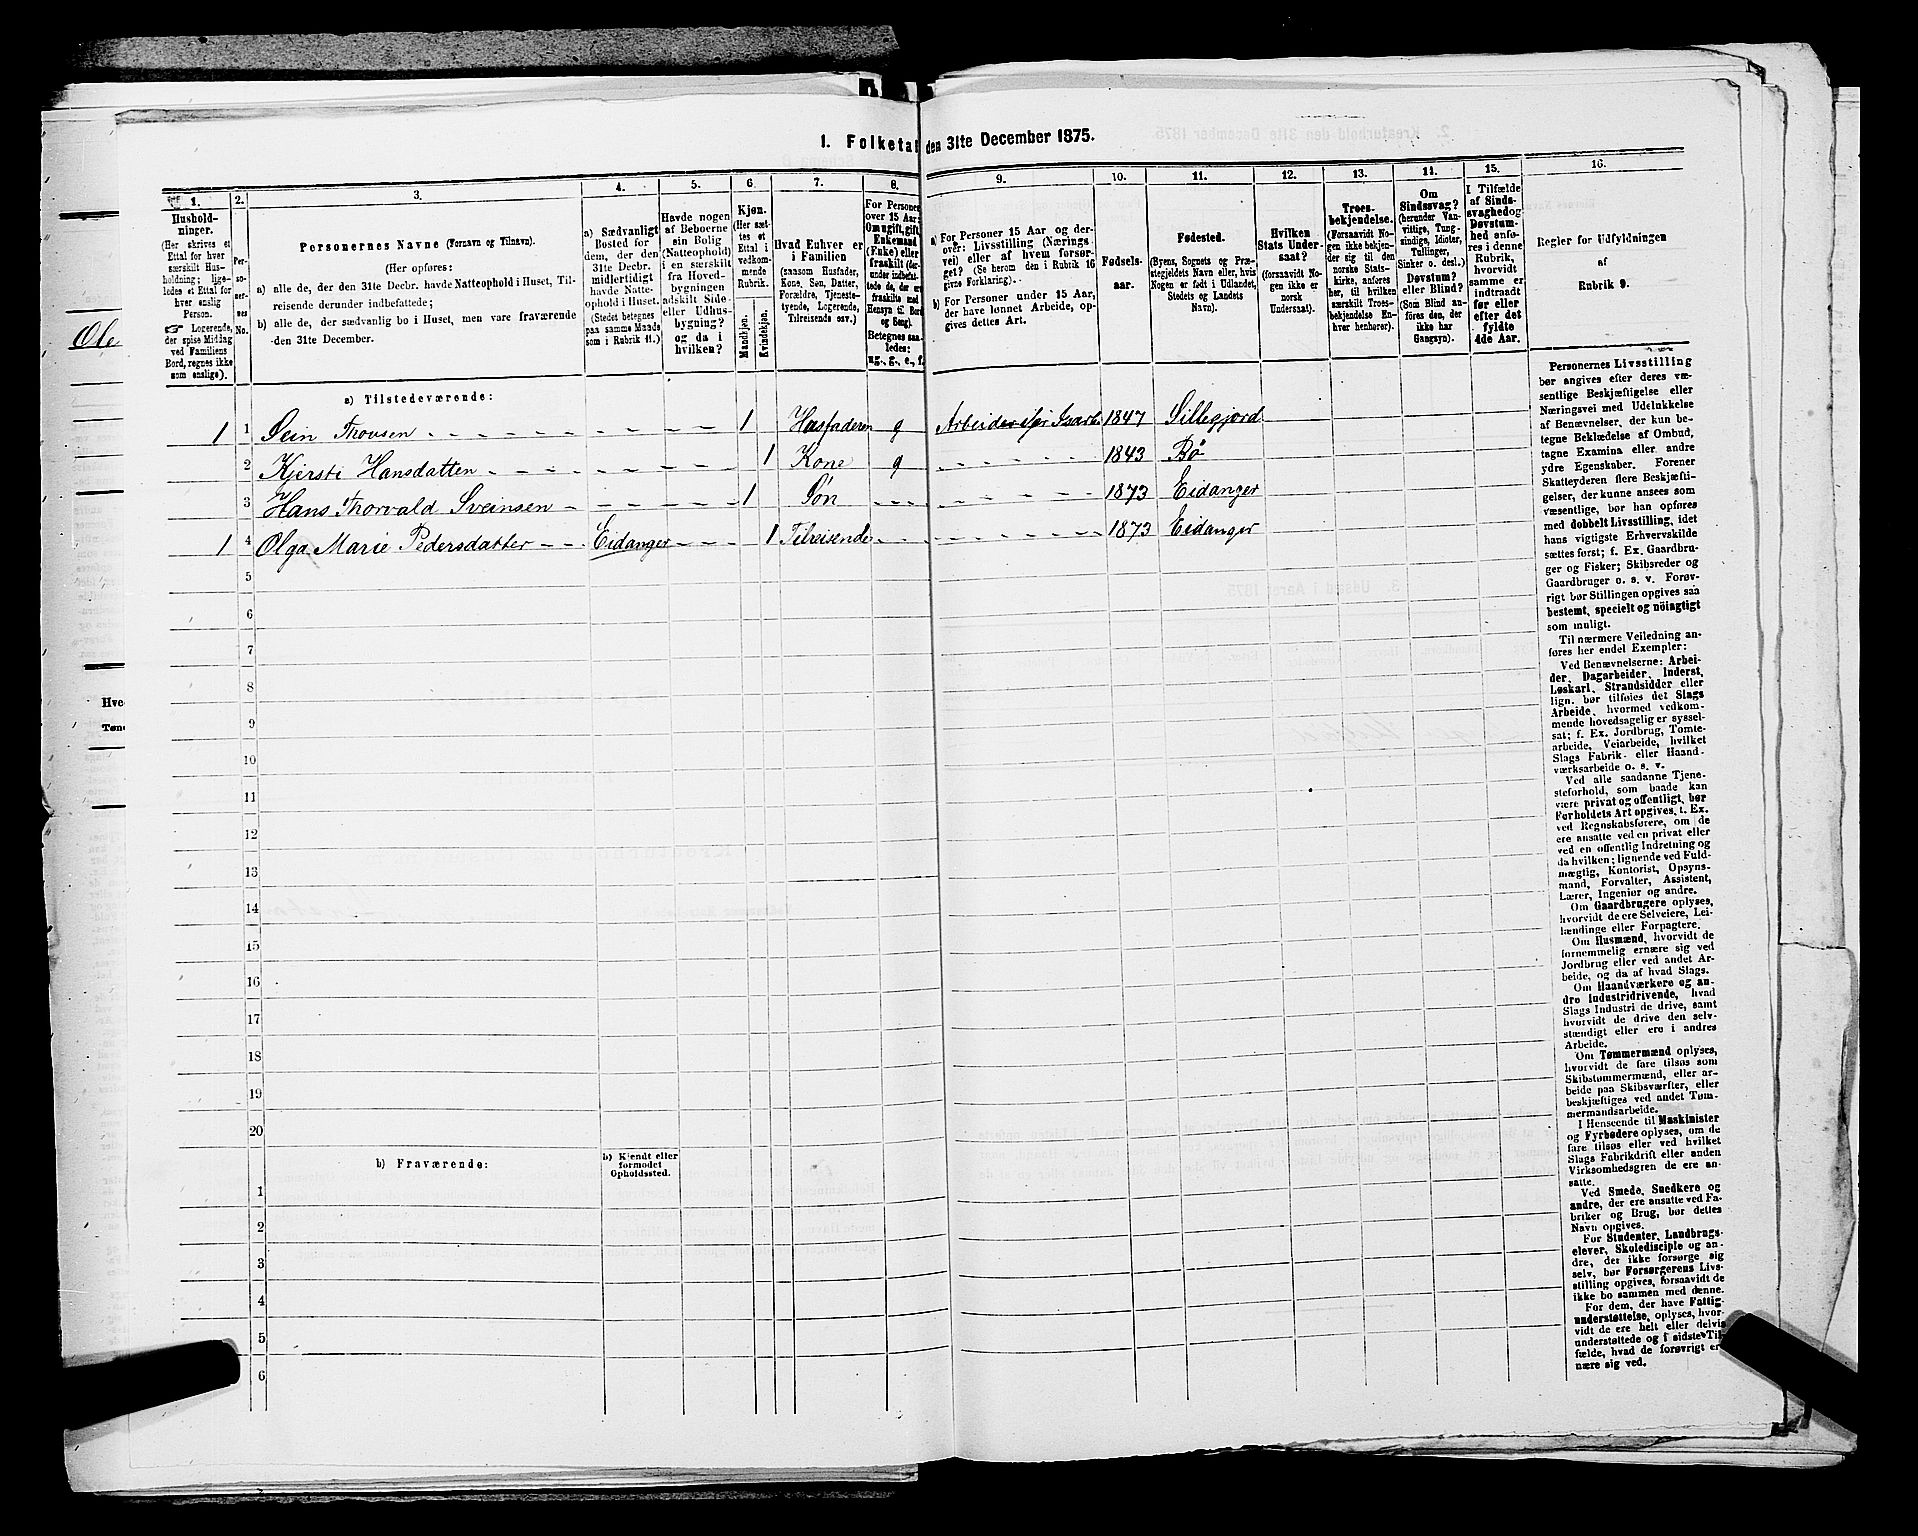 1. Folketal den 31te December 1875.
1. 2. 3. 4. 5. 6. 7. 8. 9. 10. 11. 12. 13. 14. 15. 16.
Hushold-
ninger.
(Her skrives et
Ettal for hver
særskilt Hus-
holdning; lige-
ledes et Ettal for
hver enslig
Person.
☞ Logerende,
der spise Middag
ved Familiens
Bord, regnes ikke
som enslige).
Per-
so-
ner-
nes
No.
Personernes Navne (Fornavn og Tilnavn).
(Her opføres:
a) alle de, der den 31te Decbr. havde Natteophold i Huset, Til-
reisende derunder indbefattede;
b) alle de, der sædvanlig bo i Huset, men vare fraværende
den 31te December.
a) Sædvanligt
Bosted for
dem, der den
31te Decbr.
midlertidigt
havde Natte-
ophold i Huset.
(Stedet betegnes
paa samme Maade
som i Rubrik 11.)
Havde nogen
af Beboerne
sin Bolig
(Natteophold)
i en særskilt
fra Hoved-
bygningen
adskilt Side-
eller Udhus-
bygning?
og da i
hvilken?
Kjøn.
(Her sæt-
tes et
Ettal i
vedkom-
mende
Rubrik.
Mandkjøn.
Kvindekjøn.
Hvad Enhver er
i Familien
(saasom Husfader,
Kone, Søn, Datter,
Forældre, Tjeneste-
tyende, Logerende,
Tilreisende osv.)
For Personer
over 15 Aar:
Om ugift, gift,
Enkemand
(Enke) eller
fraskilt (der-
under indbefat-
tede de, der ere
fraskilte med
Hensyn til Bord
og Seng).
Betegnes saa-
ledes:
ug., g., e., f.
a) For Personer 15 Aar og der-
over: Livsstilling (Nærings
vei) eller af hvem forsør-
get? (Se herom den i Rubrik 16
givne Forklaring).
b) For Personer under 15 Aar,
der have lønnet Arbeide, op-
gives dettes Art.
Fødsels-
aar.
Fødested.
(Byens, Sognets og Præ-
stegjeldets Navn eller, hvis
Nogen er født i Udlandet,
Stedets og Landets
Navn).
Hvilken
Stats Under-
saat?
(forsaavidt No-
gen ikke er
norsk
Undersaat).
Troes-
bekjendelse.
(Forsaavidt No-
gen ikke bekjen-
der sig til den
norske Stats-
kirke, anføres
her, til hvilken
særskilt Troes-
bekjendelse En-
hver henhører).
Om
Sindssvag?
(herunder Van-
vittige, Tung-
sindige, Idioter,
Tullinger,
Sinker o. desl.)
Døvstum?
eller Blind?
(Som Blind an-
føres den, der
ikke har
Gangsyn).
I Tilfælde
af Sinds-
svaghed og
Døvstum-
hed anfø-
res i denne
Rubrik,
hvorvidt
samme er
indtraadt
før eller
efter det
fyldte
4de Aar.
Regler for Udfyldningen
af
Rubrik 9.
a) Tilstedeværende:
1 1 Svein Thovsen 1 Husfaderen g 1847 Sillegjord
2 Kjersti Hansdatten 1 Kone g 1843 Bø
3 Hans Thorvald Sveinsen 1 Søn 1873 Eidanger
1 4 Olga Marie Pedersdatter Eidanger 1 Tilreisende 1873 Eidanger
5
6
7
8
9
10
11
12
13
14
15
16
17
18
19
20
b) Fraværende: b) Kjendt eller
formodet
Opholdssted.
1
2
3
4
5
6
Personernes Livsstilling
bør angives efter deres væ-
sentlige Beskjæftigelse eller
Næringsvei med Udelukkelse
af Benævnelser, der kun be-
tegne Beklædelse af Ombud,
tagne Examina eller andre
ydre Egenskaber. Forener
Skatteyderen flere Beskjæfti-
gelser, der kunne ansees som
væsentlige, bør han opføres
med dobbelt Livsstilling, idet
hans vigtigste Erhvervskilde
sættes først; f. Ex. Gaardbru-
ger og Fisker; Skibsreder og
Gaardbruger o. s. v. Forøv-
rigt bør Stillingen opgives saa
bestemt, specielt og nöiagtigt
som muligt.
Til nærmere Veiledning an-
føres her endel Exempler:
Ved Benævnelserne: Arbei-
der, Dagarbeider, Inderst,
Løskarl, Strandsidder eller
lign. bør tilføies det Slags
Arbeide, hvormed vedkom-
mende hovedsagelig er syssel-
sat; f. Ex. Jordbrug, Tomte-
arbeide, Veiarbeide, hvilket
Slags Fabrik- eller Haand-
værksarbeide o. s. v.
Ved alle saadanne Tjene-
steforhold, som baade kan
være privat og offentligt, bør
Forholdets Art opgives, t. Ex.
ved Regnskabsførere, om de
ere ansatte ved en privat eller
ved en offentlig Indretning og
da hvilken; lignende ved Fuld-
mægtig, Kontorist, Opsyns-
mand, Forvalter, Assistent,
Lærer, Ingeniør og andre.
Om Gaardbrugere oplyses,
hvorvidt de ere Selveiere, Lei-
lændinge eller Forpagtere.
Om Husmænd, hvorvidt de
fornemmelig ernære sig ved
Jordbrug eller ved andet Ar-
beide, og da af hvad Slags.
Om Haandværkere og an-
dre Industridrivende, hvad
Slags Industri de drive, samt
hvorvidt de drive den selv-
stændigt eller ere i andres
Arbeide.
Om Tømmermænd oplyses,
hvorvidt de fare tilsøs som
Skibstømmermænd, eller ar-
beide paa Skibsværfter, eller
beskjæftiges ved andet Tøm-
mermandsarbeide.
I Henseende til Maskinister
og Fyrbødere oplyses, om de
fare tilsøs eller ved hvilket
Slags Fabrikdrift eller anden
Virksomhedsgren de ere an-
satte.
Ved Smede, Snedkere og
andre, der ere ansatte ved Fa-
briker og Brug, bør dettes
Navn opgives.
For Studenter, Landbrugs-
elever, Skoledisciple og an-
dre, der ikke forsørge sig
selv, bør Forsørgerens Livs-
stilling opgives, forsaavidt de
ikke bo sammen med denne.
For dem, der have Fattig-
understøttelse, oplyses, hvor-
vidt de ere helt eller delvis
understøttede og i sidste Til-
fælde, hvad de forøvrigt er-
nære sig ved.
Ole